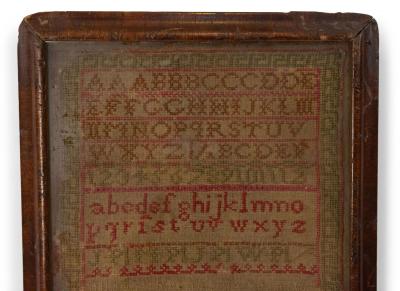 AAABBBCCCDDE
EFFGGHHIIJKLM
MNOPQRSTUV
WXYZ
ABCDEF
1 2 3 4 5 6 7 8 9 10 11 12
abcdefghijklmno
pqrſstuvwxyz